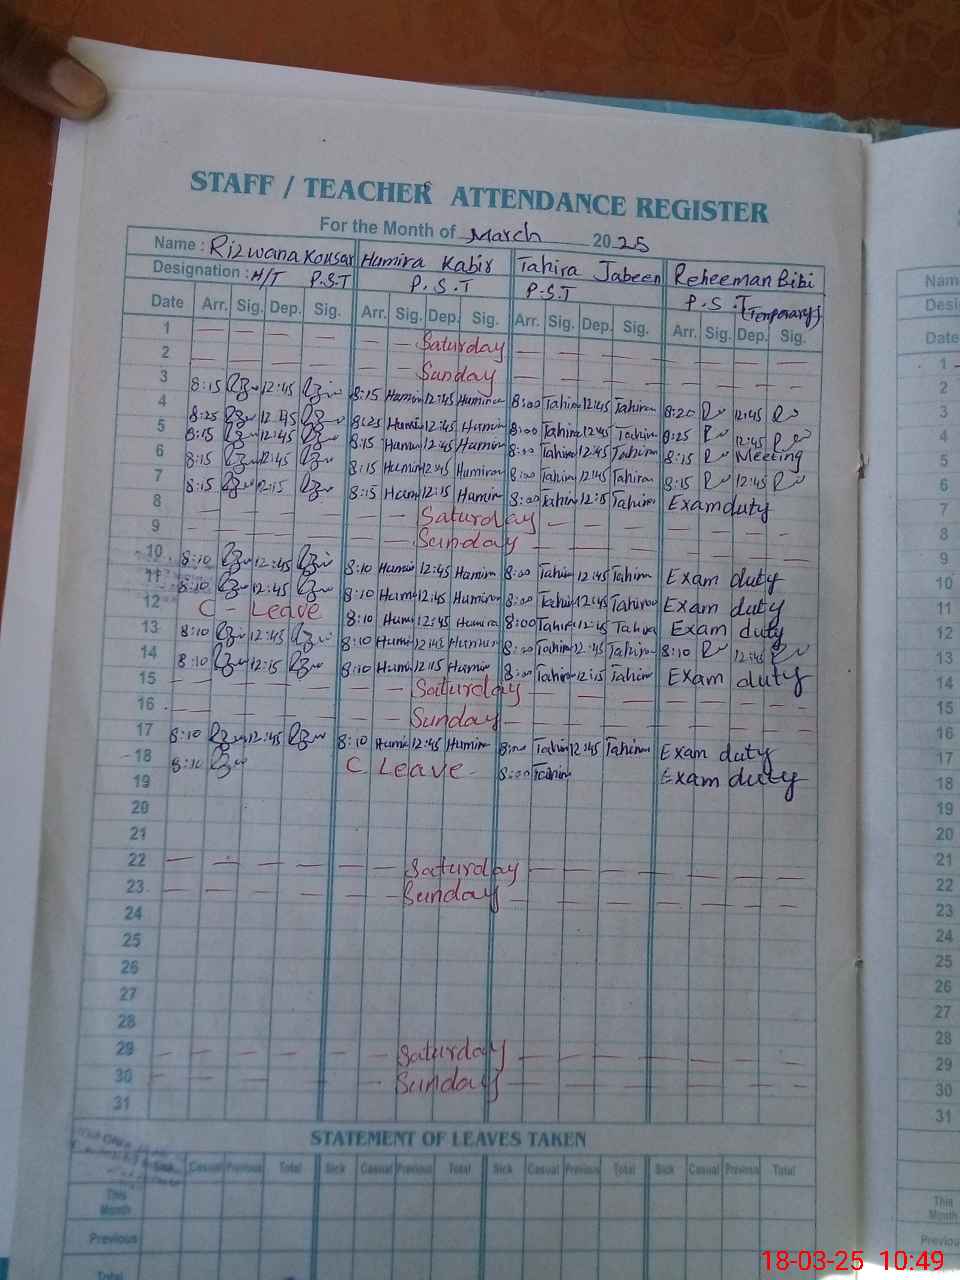 STAFF / TEACHER ATTENDANCE REGISTER
For the Month of March 2025
Name : Rizwana Kousar Humira Kabir Tahira Jabeen Reheeman Bibi
Designation : H/T P.S.T P.S.T P.S.T P.S.T (Temporary)
Date Arr. Sig. Dep. Sig. Arr. Sig. Dep. Sig. Arr. Sig. Dep. Sig. Arr. Sig. Dep. Sig.
1 — — — — — — Saturday — — — — — — — —
2 — — — — — — Sunday — — — — — — — —
3 8:15 12:45 8:15 12:45 8:00 Tahira 12:45 Tahira 8:20 12:45
4 8:25 12:45 8:25 12:45 8:00 Tahira 12:45 Tahira 8:25 12:45
5 8:15 12:45 8:15 12:45 8:00 Tahira 12:45 Tahira 8:15 Meeting
6 8:15 12:45 8:15 12:45 8:00 Tahira 12:45 Tahira 8:15 12:45
7 8:15 12:15 8:15 12:15 8:00 Tahira 12:15 Tahira Exam duty
8 — — — — — — Saturday — — — — — — —
9 — — — — — — Sunday — — — — — — —
10 8:10 12:45 8:10 12:45 8:00 Tahira 12:45 Tahira Exam duty
11 8:10 12:45 8:10 12:45 8:00 Tahira 12:45 Tahira Exam duty
12 C - Leave 8:10 12:45 8:00 Tahira 12:45 Tahira Exam duty
13 8:10 12:45 8:10 12:45 8:00 Tahira 12:45 Tahira 8:10 12:45
14 8:10 12:15 8:10 12:15 8:00 Tahira 12:15 Tahira Exam duty
15 — — — — — — Saturday — — — — — — —
16 — — — — — — Sunday — — — — — — — —
17 8:10 12:45 8:10 12:45 8:00 Tahira 12:45 Tahira Exam duty
18 8:10 C Leave 8:00 Tahira Exam duty
19
20
21
22 — — — — — — Saturday — — — — — — — —
23 — — — — — — Sunday — — — — — — — —
24
25
26
27
28
29 — — — — — — Saturday — — — — — — — —
30 — — — — — Sunday — — — — — — — —
31
STATEMENT OF LEAVES TAKEN
Sick Casual Previous Total Sick Casual Previous Total Sick Casual Previous Total Sick Casual Previous Total
This Month
Previous
Total
Name
Desig
Date
1
2
3
4
5
6
7
8
9
10
11
12
13
14
15
16
17
18
19
20
21
22
23
24
25
26
27
28
29
30
31
This
Month
Previous
18-03-25 10:49